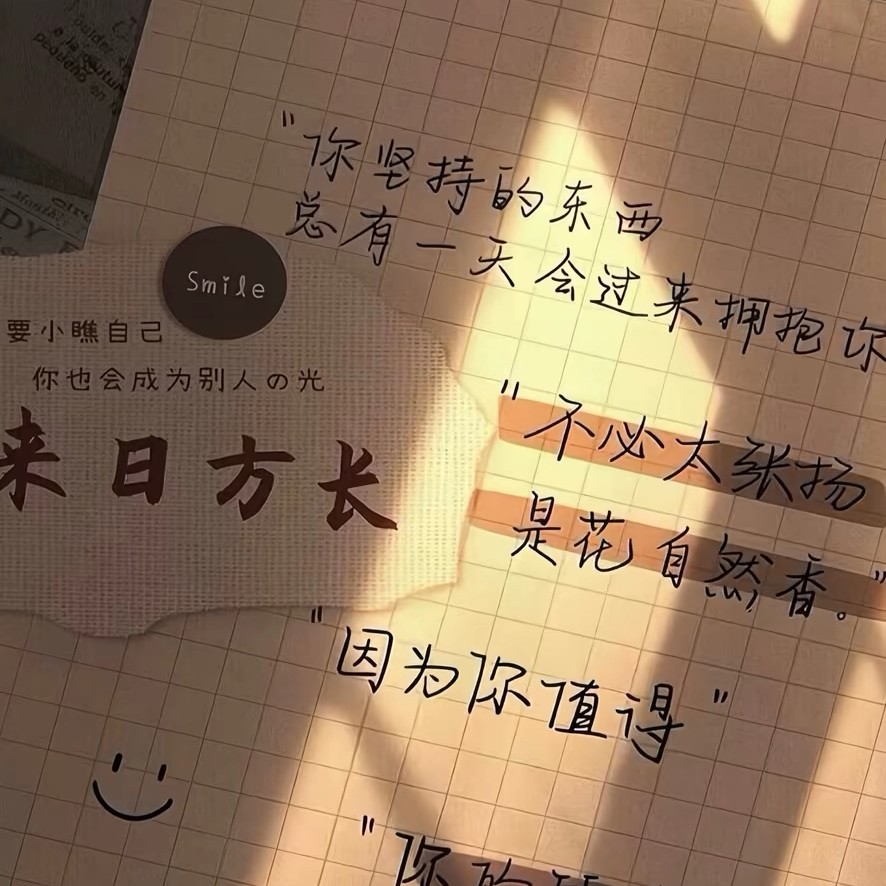 "你坚持的东西
总有一天会过来拥抱你
Smile
要小瞧自己
你也会成为别人の光
来日方长
"不必太张扬
是花自然香。"
"因为你值得"
"你的